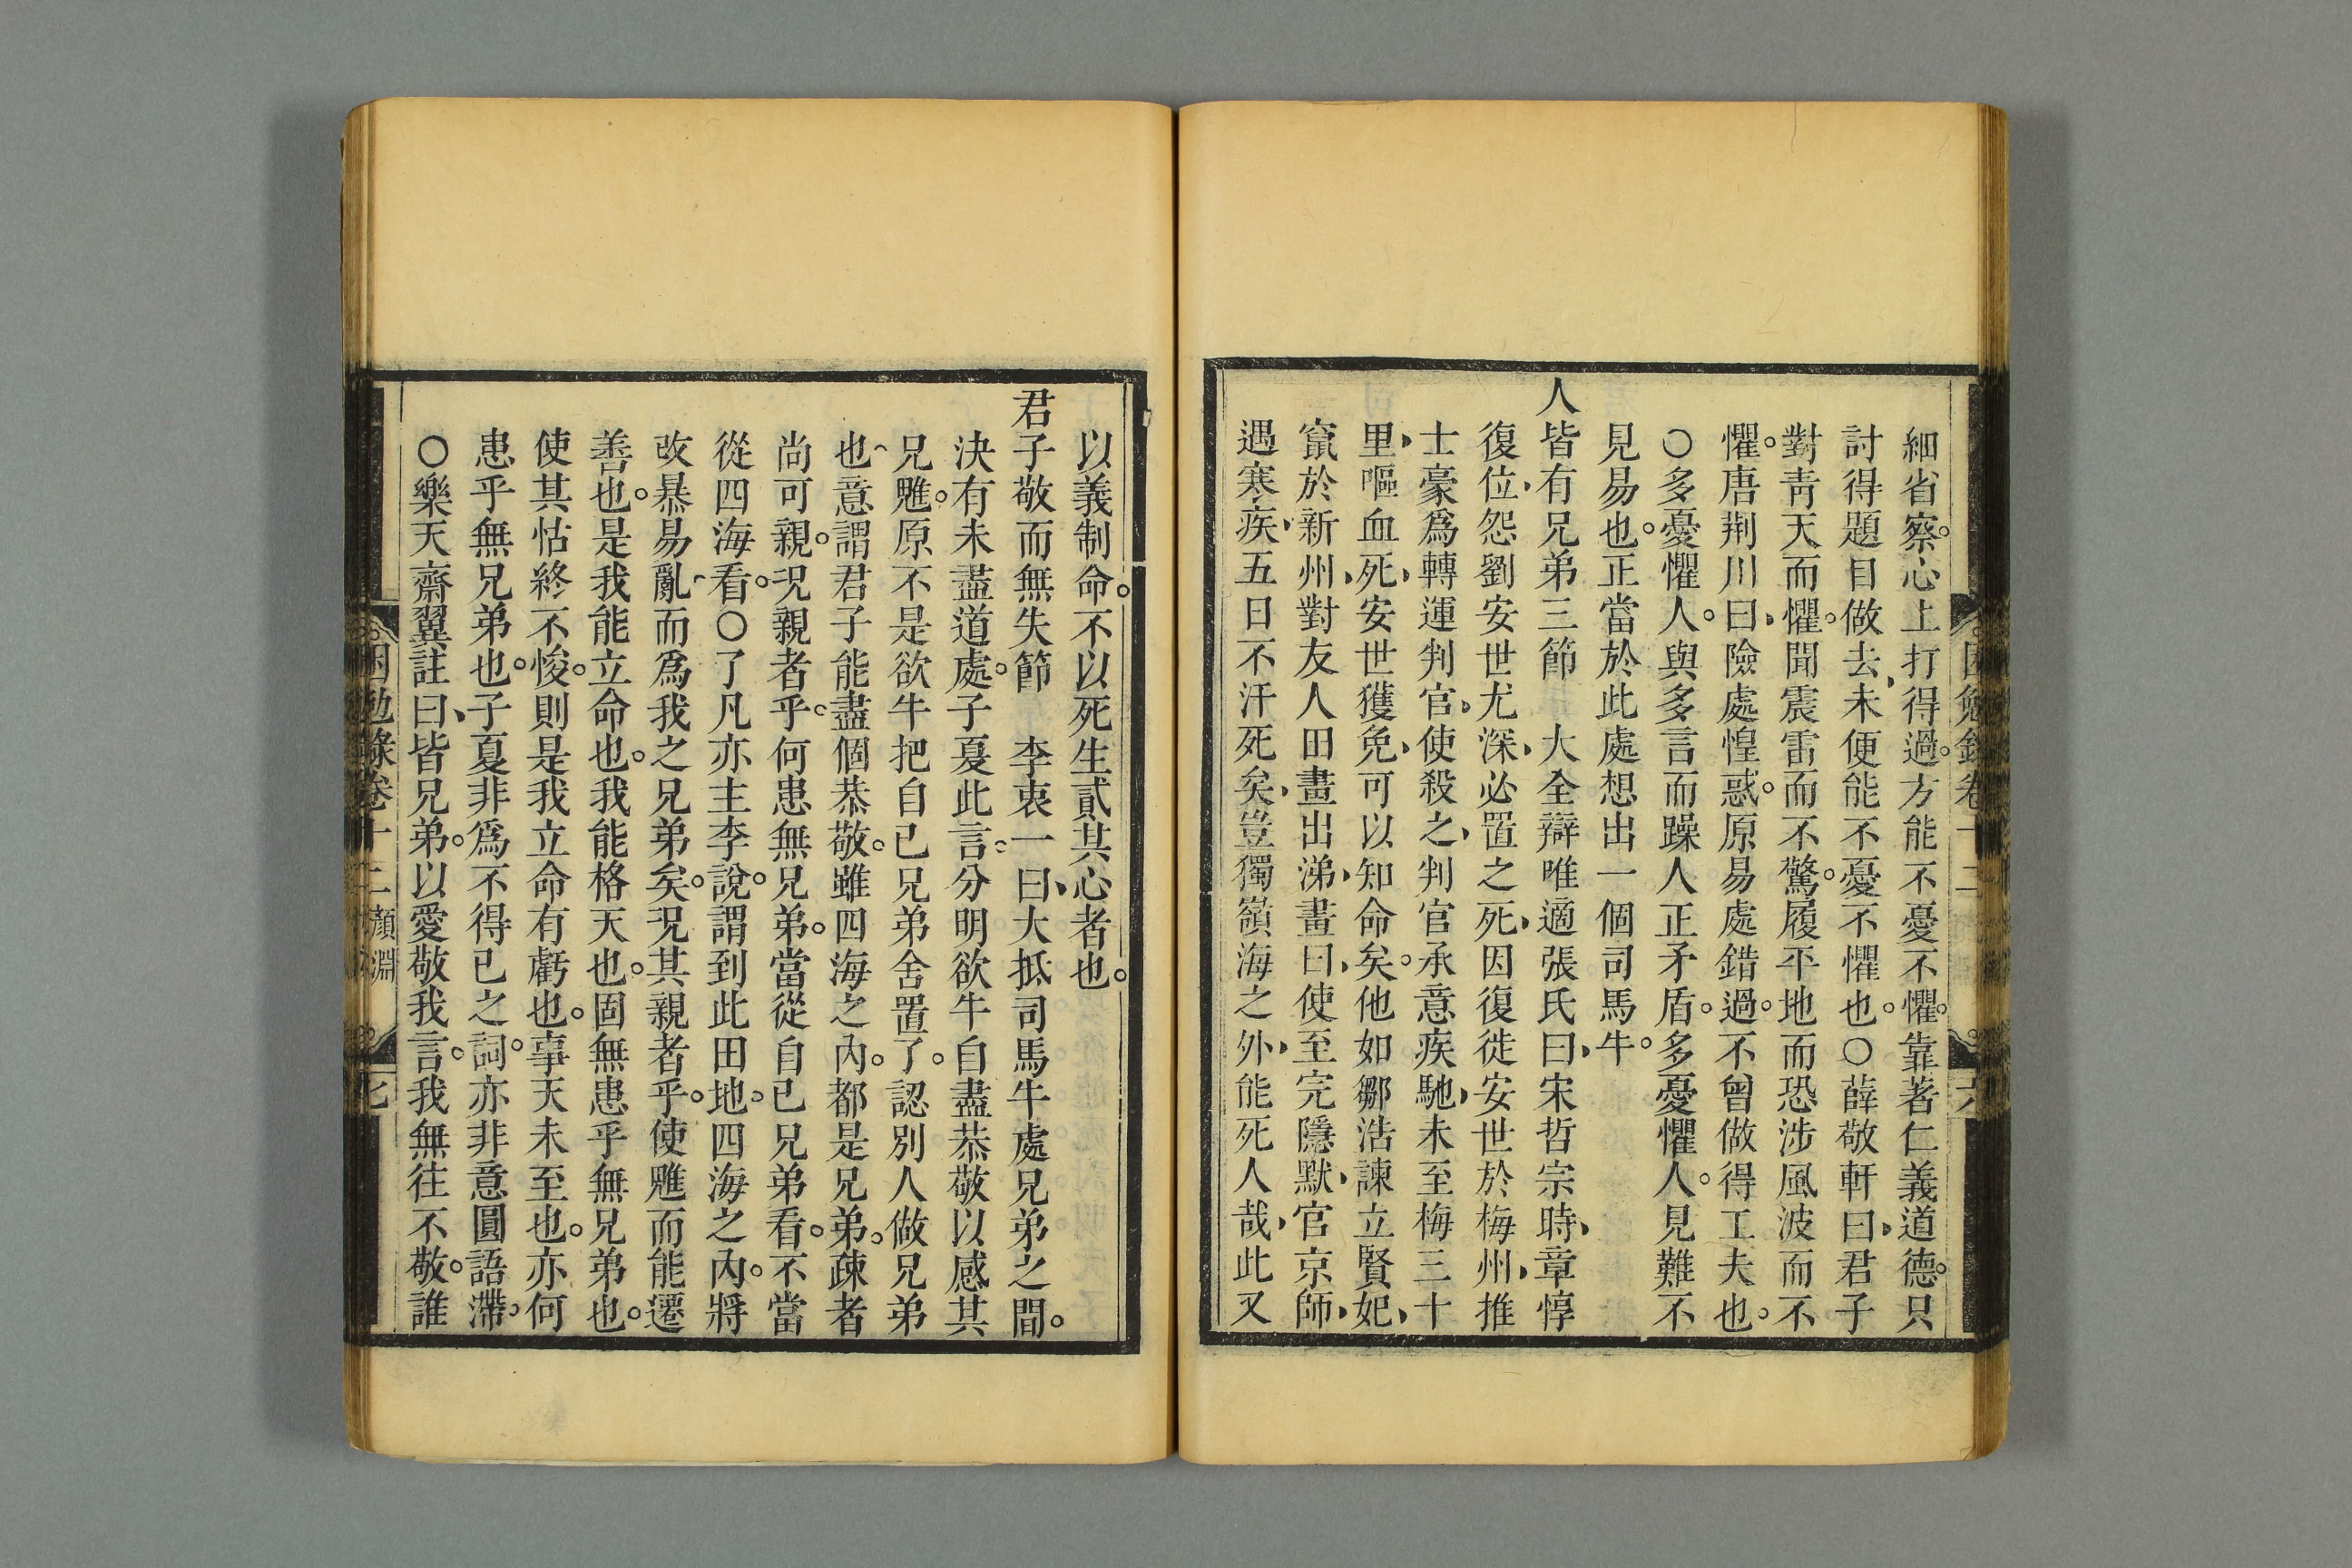 細省察。心上打得過。方能不憂不懼。靠著仁義道德。只
討得題目做去、未便能不憂不懼也。○薛敬軒曰、君子
對靑天而懼。聞震雷而不驚。履平地而恐涉風波而不
懼。唐荆川曰、險處惶惑。原易處錯過。不曾做得工夫也。
○多憂懼人。與多言而躁人正矛盾。多憂懼人。見難不
見易也。正當於此處想出一個司馬牛。
人皆有兄弟三節　大全辯唯適張氏曰、宋哲宗時、章惇
復位、怨劉安世尤深、必置之死、因復徙安世於梅州、推
士豪爲轉運判官、使殺之、判官承意疾馳、未至梅三十
里、嘔血死、安世獲免、可以知命矣。他如鄒浩諫立賢妃、
竄於新州、對友人田畫出涕、畫曰、使至完隱默、官京師、
遇寒疾、五日不汗死矣、豈獨嶺海之外、能死人哉、此又
困勉錄卷十二　六
以義制命。不以死生貳其心者也。
君子敬而無失節　李衷一曰、大抵司馬牛處兄弟之間。
決有未盡道處。子夏此言。分明欲牛自盡恭敬以感其
兄魋。原不是欲牛把自己兄弟舍置了。認別人做兄弟
也。意謂君子能盡個恭敬。雖四海之內。都是兄弟。疎者
尚可親。况親者乎。何患無兄弟。當從自已兄弟看。不當
從四海看。○了凡亦主李說。謂到此田地。四海之內。將
改暴易亂而爲我之兄弟矣。况其親者乎。使魋而能遷
善也。是我能立命也。我能格天也。固無患乎無兄弟也。
使其怙終不悛。則是我立命有虧也。事天未至也。亦何
患乎無兄弟也。子夏非爲不得已之詞。亦非意圓語滯。
○樂天齋翼註曰、皆兄弟。以愛敬我言。我無往不敬。誰
困勉錄卷十二　顏淵　七